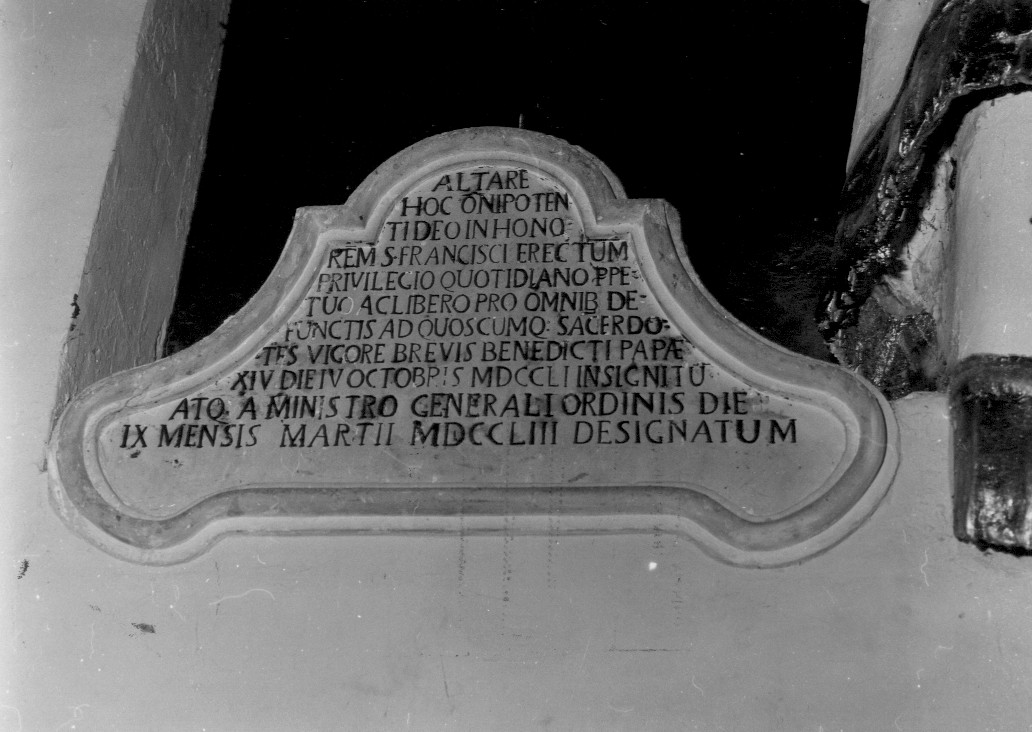 ALTARE
HOC ŌNIPOTEN
TI DEO IN HONO-
REM S·FRANCISCI ERECTUM
PRIVILEGIO QUOTIDIANO PPE-
TUO AC LIBERO PRO OMNIB DE-
FUNCTIS AD QUOSCUMQ: SACERDO-
TES VIGORE BREVIS BENEDICTI PAPÆ
XIV DIE IV OCTOBRIS MDCCLI INSIGNITŪ
ATQ. A MINISTRO GENERALI ORDINIS DIE
IX MENSIS MARTII MDCCLIII DESIGNATUM